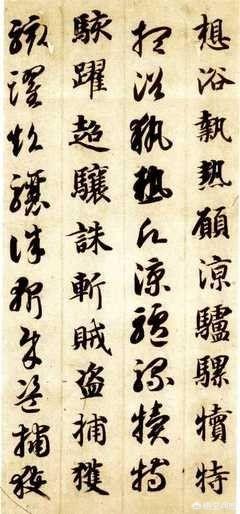 想浴執熱願涼驢騾犢特
想浴執熱願涼驢騾犢特
駭躍超驤誅斬賊盗捕獲
駭躍超驤誅斬賊盗捕獲